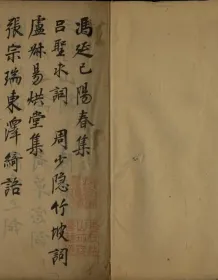 馮延己陽春集
呂聖求詞　周少隱竹坡詞
盧疎易烘堂集
張宗瑞東澤綺語